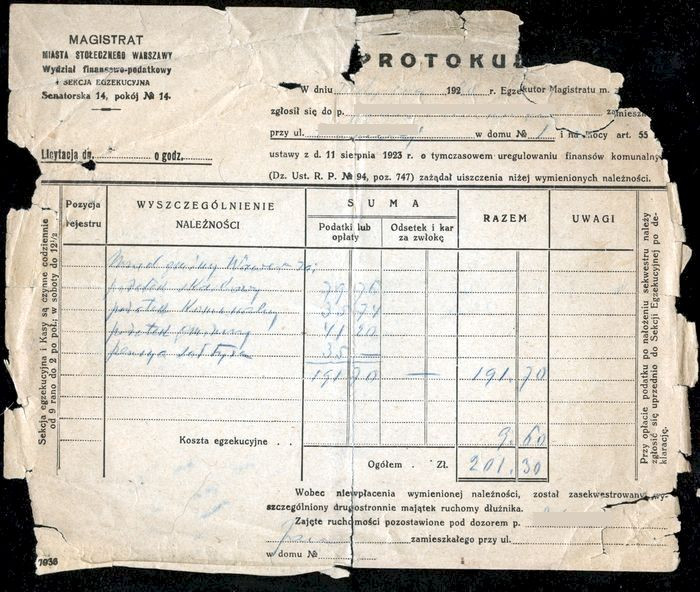 MAGISTRAT
MIASTA STOŁECZNEGO WARSZAWY
Wydział finansowo-podatkowy
SEKCJA EGZEKUCYJNA
Senatorska 14, pokój № 14.
Licytacja dn. o godz.
PROTOKUŁ
W dniu 192 r. Egzekutor Magistratu m.
zgłosił się do p. zamieszk
przy ul. w domu № 1 i na mocy art. 55
ustawy z d. 11 sierpnia 1923 r. o tymczasowem uregulowaniu finansów komunalny
(Dz. Ust. R. P. № 94, poz. 747) zażądał uiszczenia niżej wymienionych należności.
Sekcja egzekucyjna i Kasy są czynne codziennie
od 9 rano do 2 po poł.; w soboty do 12½
Pozycja rejestru
WYSZCZEGÓLNIENIE NALEŻNOŚCI
SUMA
Podatki lub opłaty
Odsetek i kar za zwłokę
RAZEM
UWAGI
podatek 79 76
podatek 35 74
podatek 41 20
35 —
191 70 — 191.70
Koszta egzekucyjne . . 9.60
Ogółem . Zł. 201.30
Przy opłacie podatku po nałożeniu sekwestru należy
zgłosić się uprzednio do Sekcji Egzekucyjnej po de-
klarację.
Wobec niewpłacenia wymienionej należności, został zasekwestrowany wy-
szczególniony drugostronnie majątek ruchomy dłużnika.
Zajęte ruchomości pozostawione pod dozorem p.
zamieszkałego przy ul.
w domu №